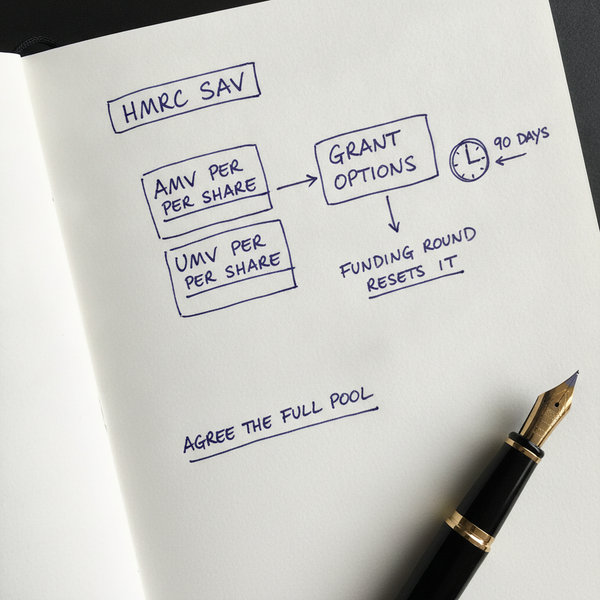 HMRC SAV
AMV PER
PER SHARE
GRANT
OPTIONS
90 DAYS
UMV PER
PER SHARE
FUNDING ROUND
RESETS IT
AGREE THE FULL POOL